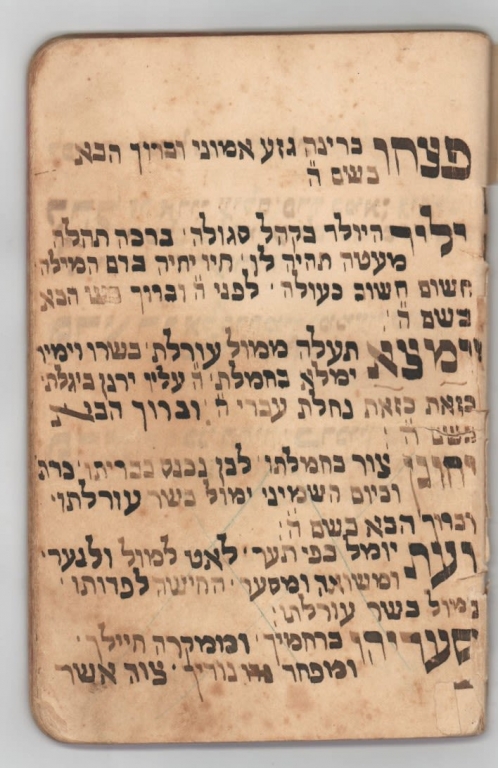 פצחו ברינה גזע אמוני וברוך הבא
בשם ה'
יליד היולד בקהל סגולה' ברכה תהלה
מעטה תהיה לו' חיו יחיה בדם המילה
חשוב כעולה' לפני ה' וברוך הבא
בשם ה':
ימצא תעלה ממול עורלת' בשרו וימיו
ימלא בחמלת' ה' עליו ירנן
כזאת כזאת נחלת עבדי ה' וברוך הבא
בשם ה':
צור בחמלתו' לבן נכנס בבריתו' ברת
וביום השמיני ימול בשר עורלתו'
וברוך הבא בשם ה':
ועת יומל בפי תער' לאט למול ולנער'
ומשואה ומסער' החישה לפדותו'
נמול בשר עורלתו:
סעדיהו ברחמיך' וממקרה חיילך'
ומפחד נוריך' צוה אשר